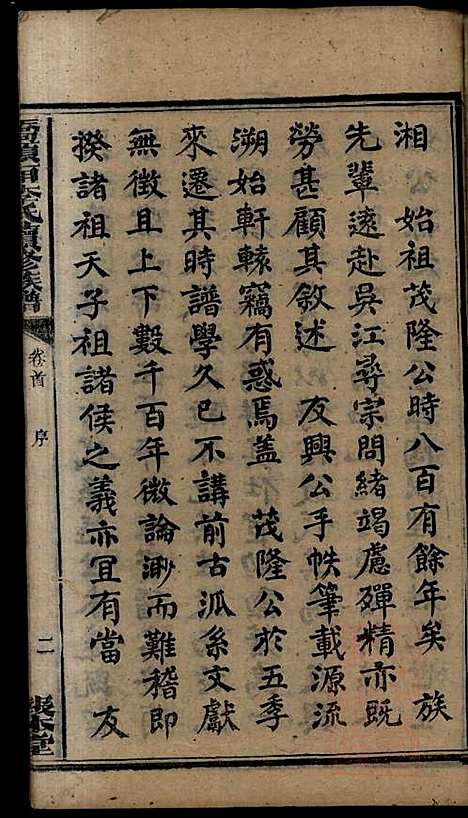 湘　始祖茂隆公時八百有餘年矣　族
先輩遠赴吳江尋宗問緒竭慮殫精亦既
勞甚顧其敘述　友興公手帙筆載源流
溯始軒轅竊有惑焉蓋　茂隆公於五季
來遷其時譜學久已不講前古派系文獻
無徵且上下數千百年微論渺而難稽即
揆諸祖天子祖諸侯之義亦宜有當　友
氏續修族譜
卷首
序
二
堂